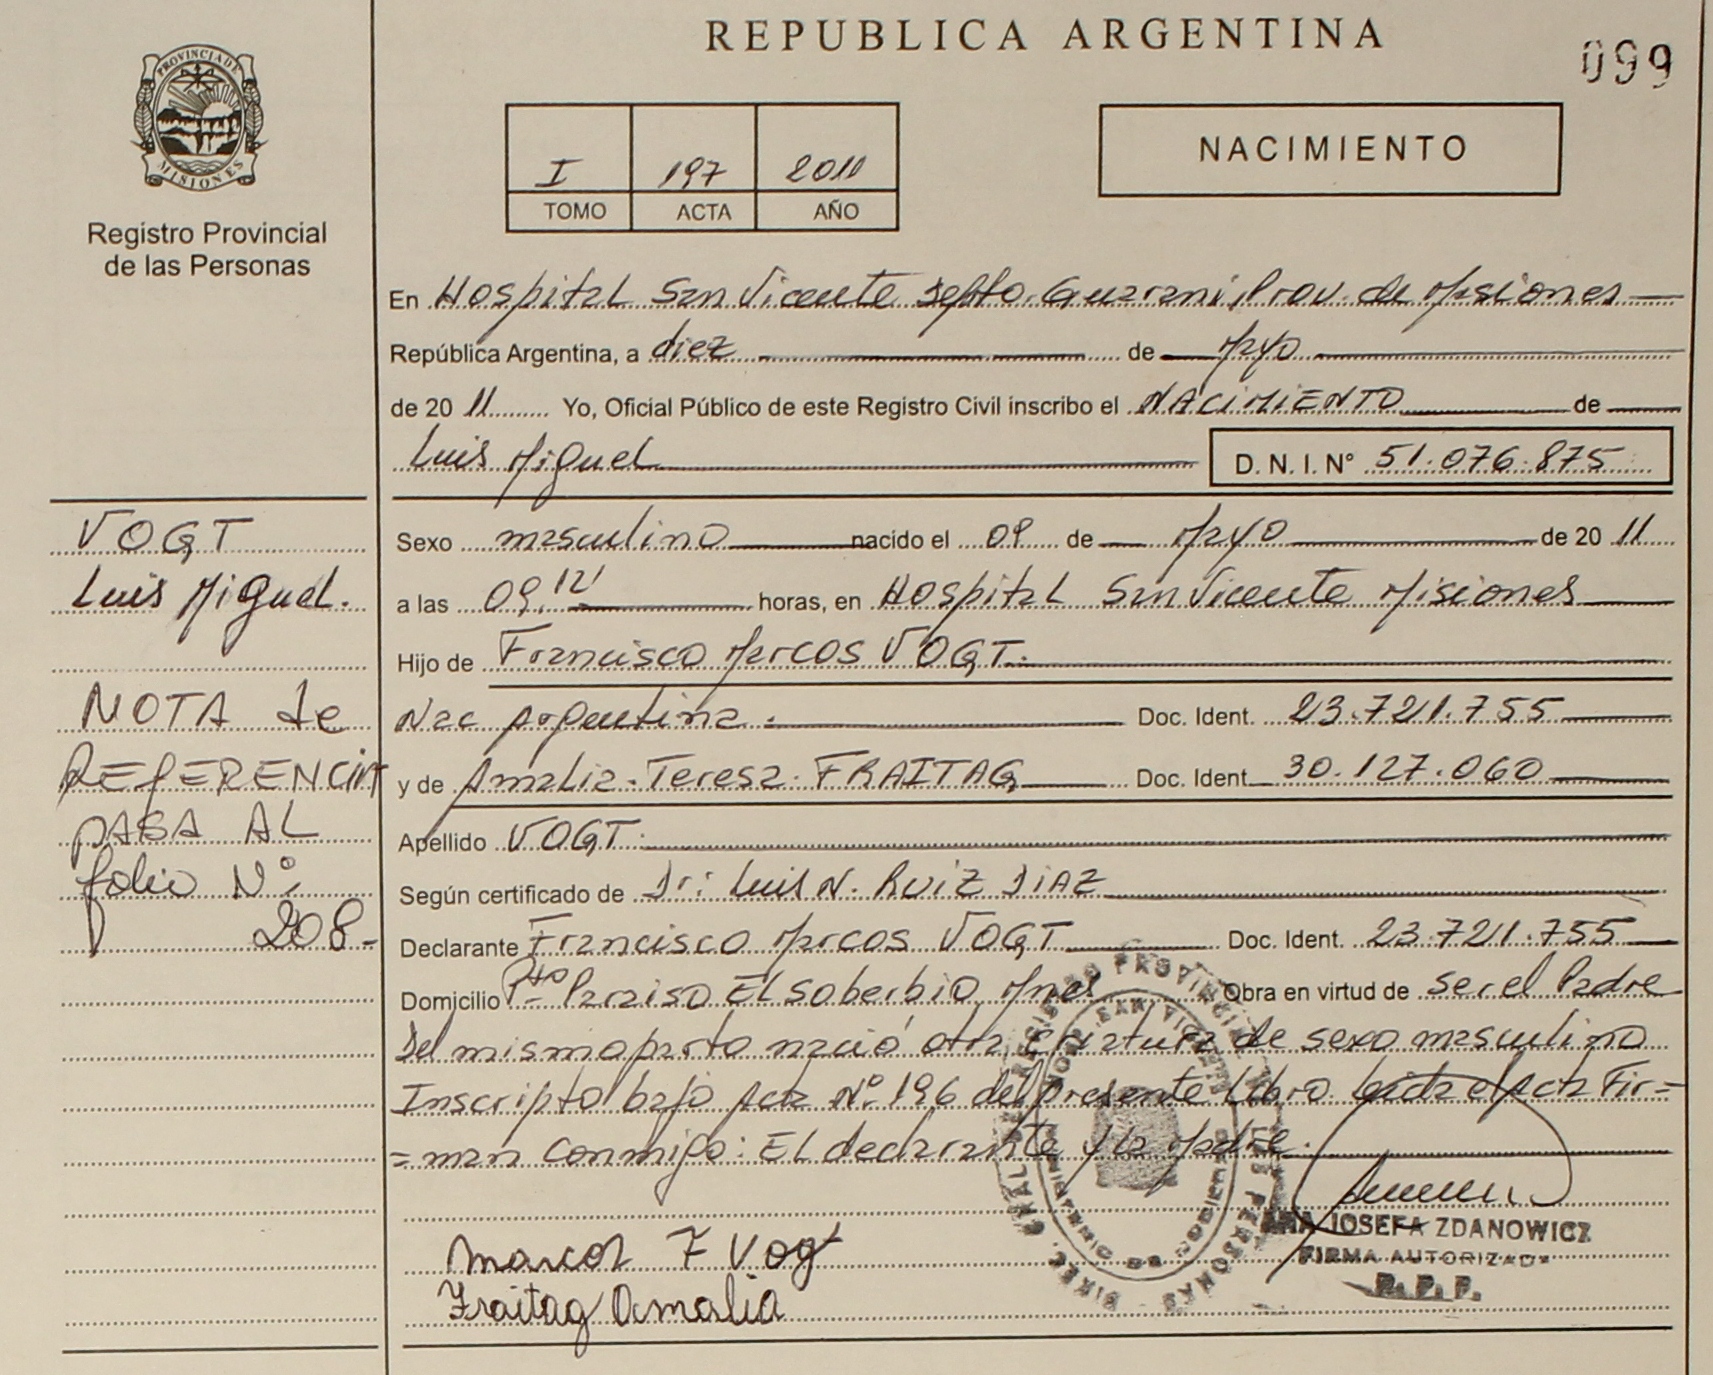 REPUBLICA ARGENTINA
099
PROVINCIA DE
MISIONES
Registro Provincial
de las Personas
I 197 2011
TOMO ACTA AÑO
NACIMIENTO
En Hospital San Vicente Depto. Guarani, Prov. de Misiones
República Argentina, a diez de Mayo
de 2011 Yo, Oficial Público de este Registro Civil inscribo el NACIMIENTO de
Luis Miguel D. N. I. N° 51.076.875
VOGT
Luis Miguel.
NOTA de
REFERENCIA
PASA AL
folio N°:
208-
Sexo masculino nacido el 09 de Mayo de 2011
a las 09,12' horas, en Hospital San Vicente Misiones
Hijo de Francisco Marcos VOGT.
Nac Argentina. Doc. Ident. 23.721.755
y de Amalia Teresa FRAITAG Doc. Ident. 30.127.060
Apellido VOGT
Según certificado de Dr: Luis N. RUIZ DIAZ
Declarante Francisco Marcos VOGT Doc. Ident. 23.721.755
Domicilio Pto Paraiso El Soberbio, Mnes Obra en virtud de ser el Padre
Del mismo parto nació otra criatura de sexo masculino
Inscripto bajo Acta N° 196 del presente Libro. Leida el Acta Fir=
=man conmigo: El declarante y la Madre.
Marcos F Vogt
Fraitag Amalia
ANA JOSEFA ZDANOWICZ
FIRMA AUTORIZADA
R. P. P.